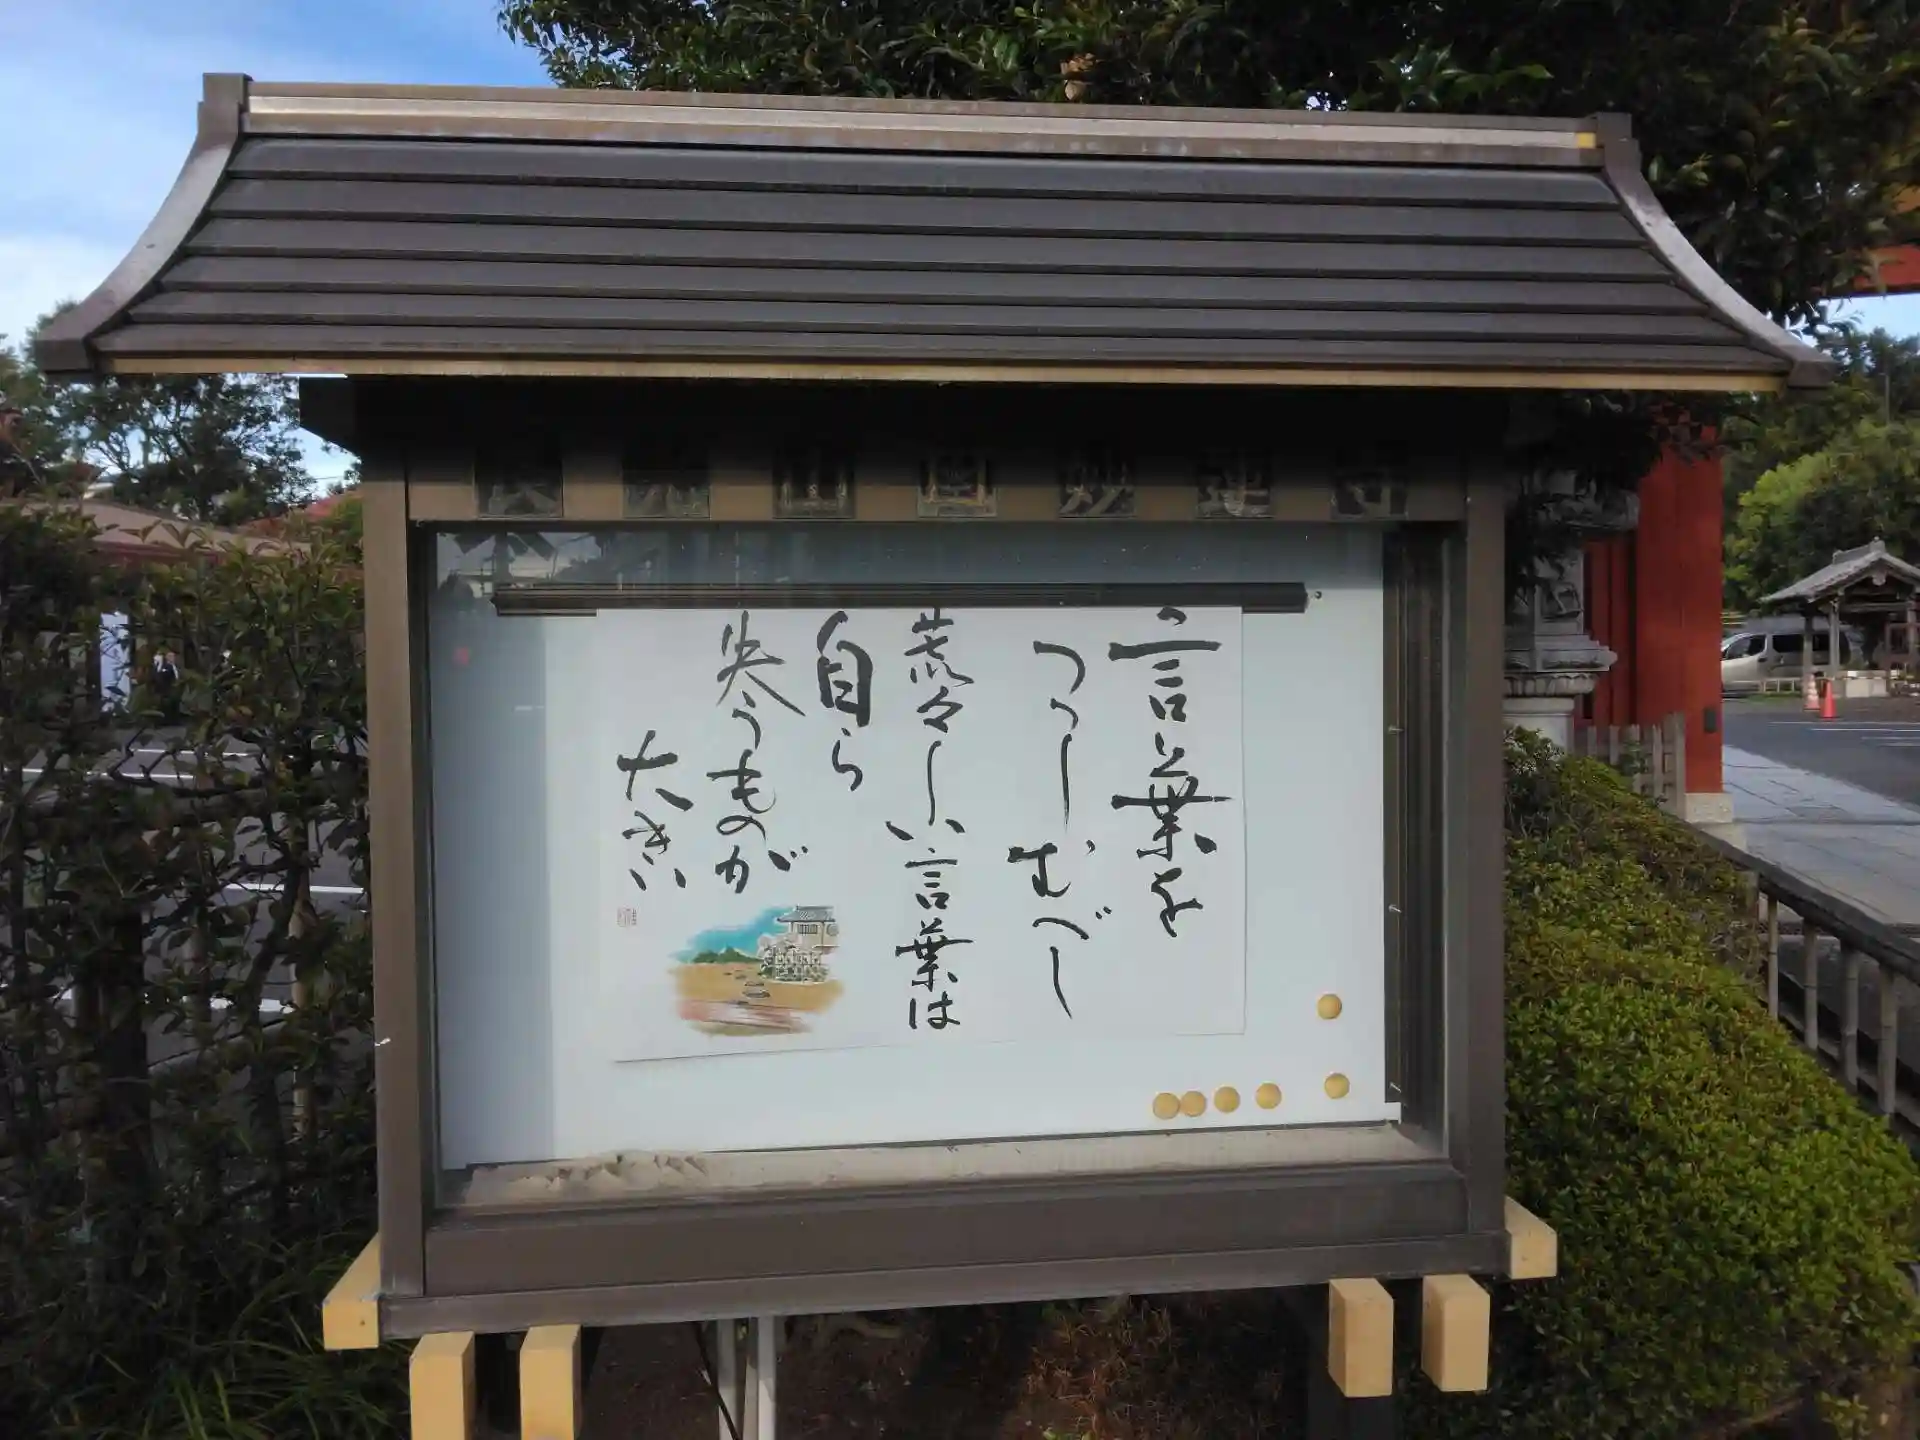 山圓妙蓮寺
言葉を
つつしむべし
荒々しい言葉は
自ら
失うものが
大きい